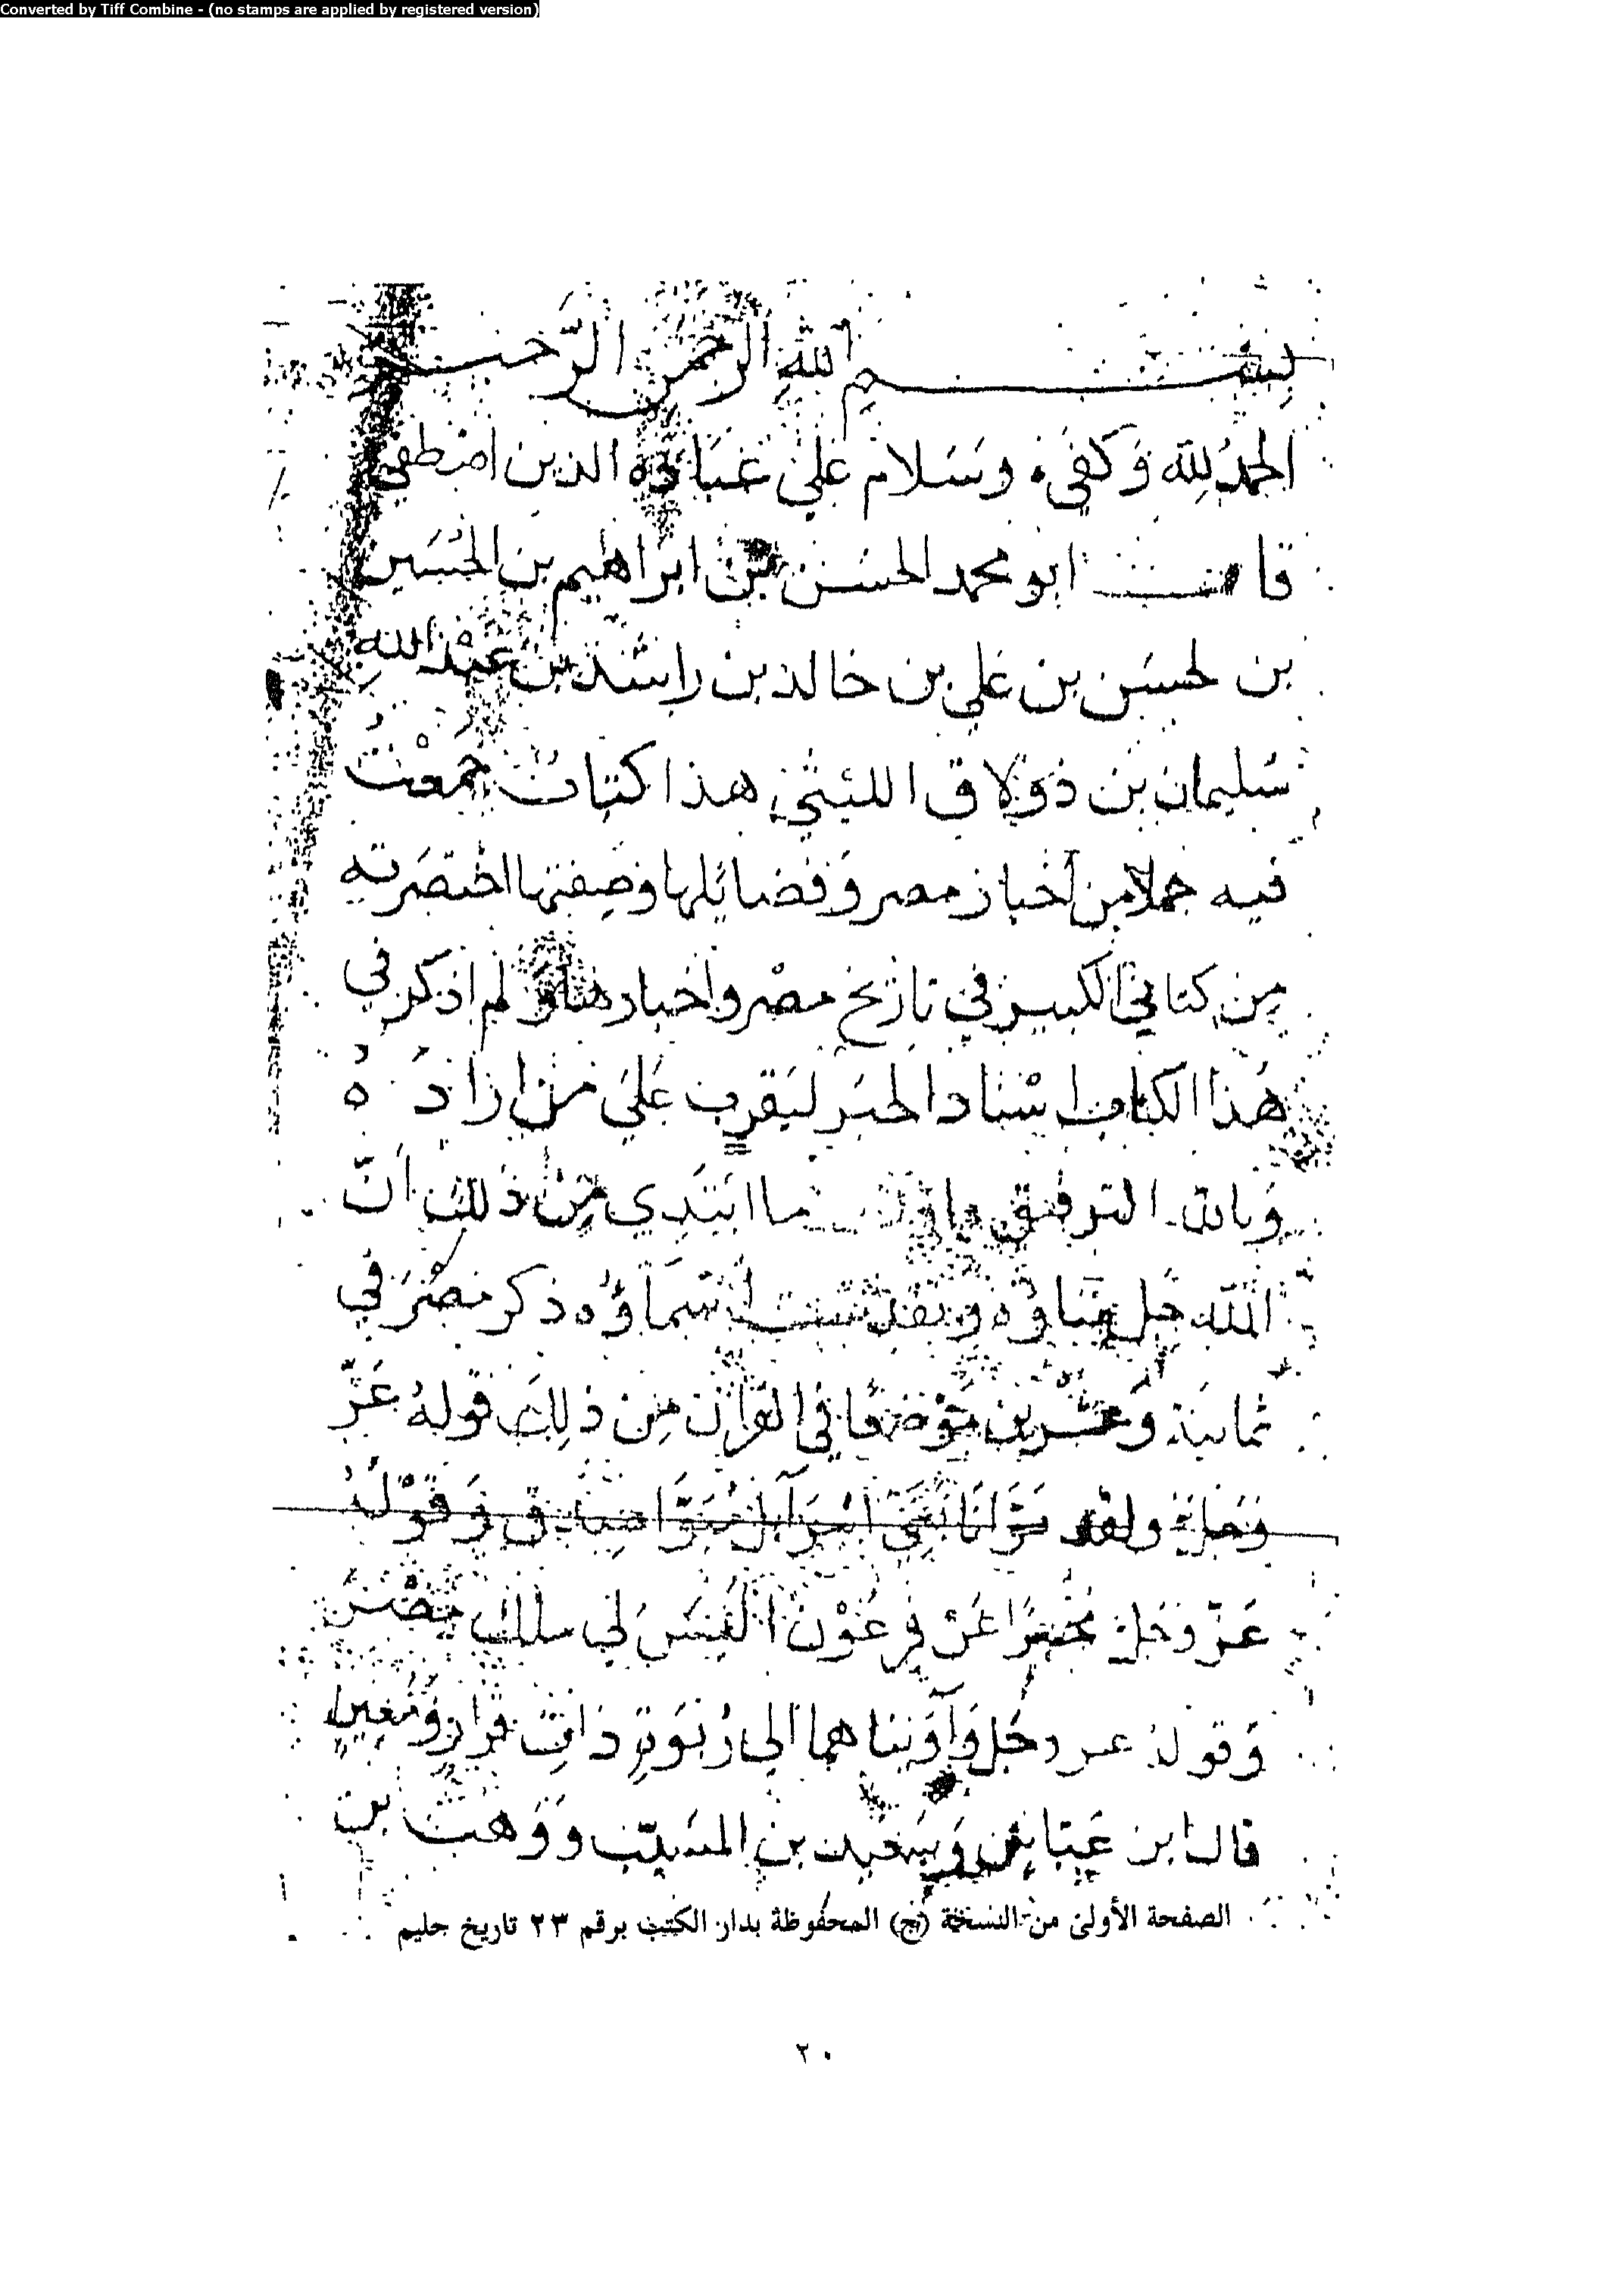 Converted by Tiff Combine - (no stamps are applied by registered version)
بسم الله الرحمن الرحيم
الحمد لله وكفى وسلام على عباده الذين اصطفى
قال ابو محمد الحسن بن ابراهيم بن الحسين
بن لحسن بن علي بن خالد بن راشد بن عبد الله
سليمان بن زولاق الليثي هذا كتاب جمعت
فيه جملا من أخبار مصر وفضايلها وصفتها اختصرته
من كتابي الكبير في تاريخ مصر واخبارها ولم اذكر في
هذا الكتاب اسناد الخبر ليقرب على من اراده
وبالله التوفيق ما ابتدي من ذلك ان
الله جل ثناؤه وتقدست أسماؤه ذكر مصر في
ثمانية وعشرين موضعا في القرآن من ذلك قوله عز
وجل ولقد بوّأنا بني اسرآيل مبوّا صدق وقوله
عز وجل مخبرا عن فرعون أليس لي ملك مصر
وقوله عز وجل وآويناهما الى ربوة ذات قرار ومعين
قال ابن عباس وسعيد بن المسيب ووهب بن
الصفحة الأولى من النسخة (ج) المحفوظة بدار الكتب برقم ٢٣ تاريخ حليم
٢٠